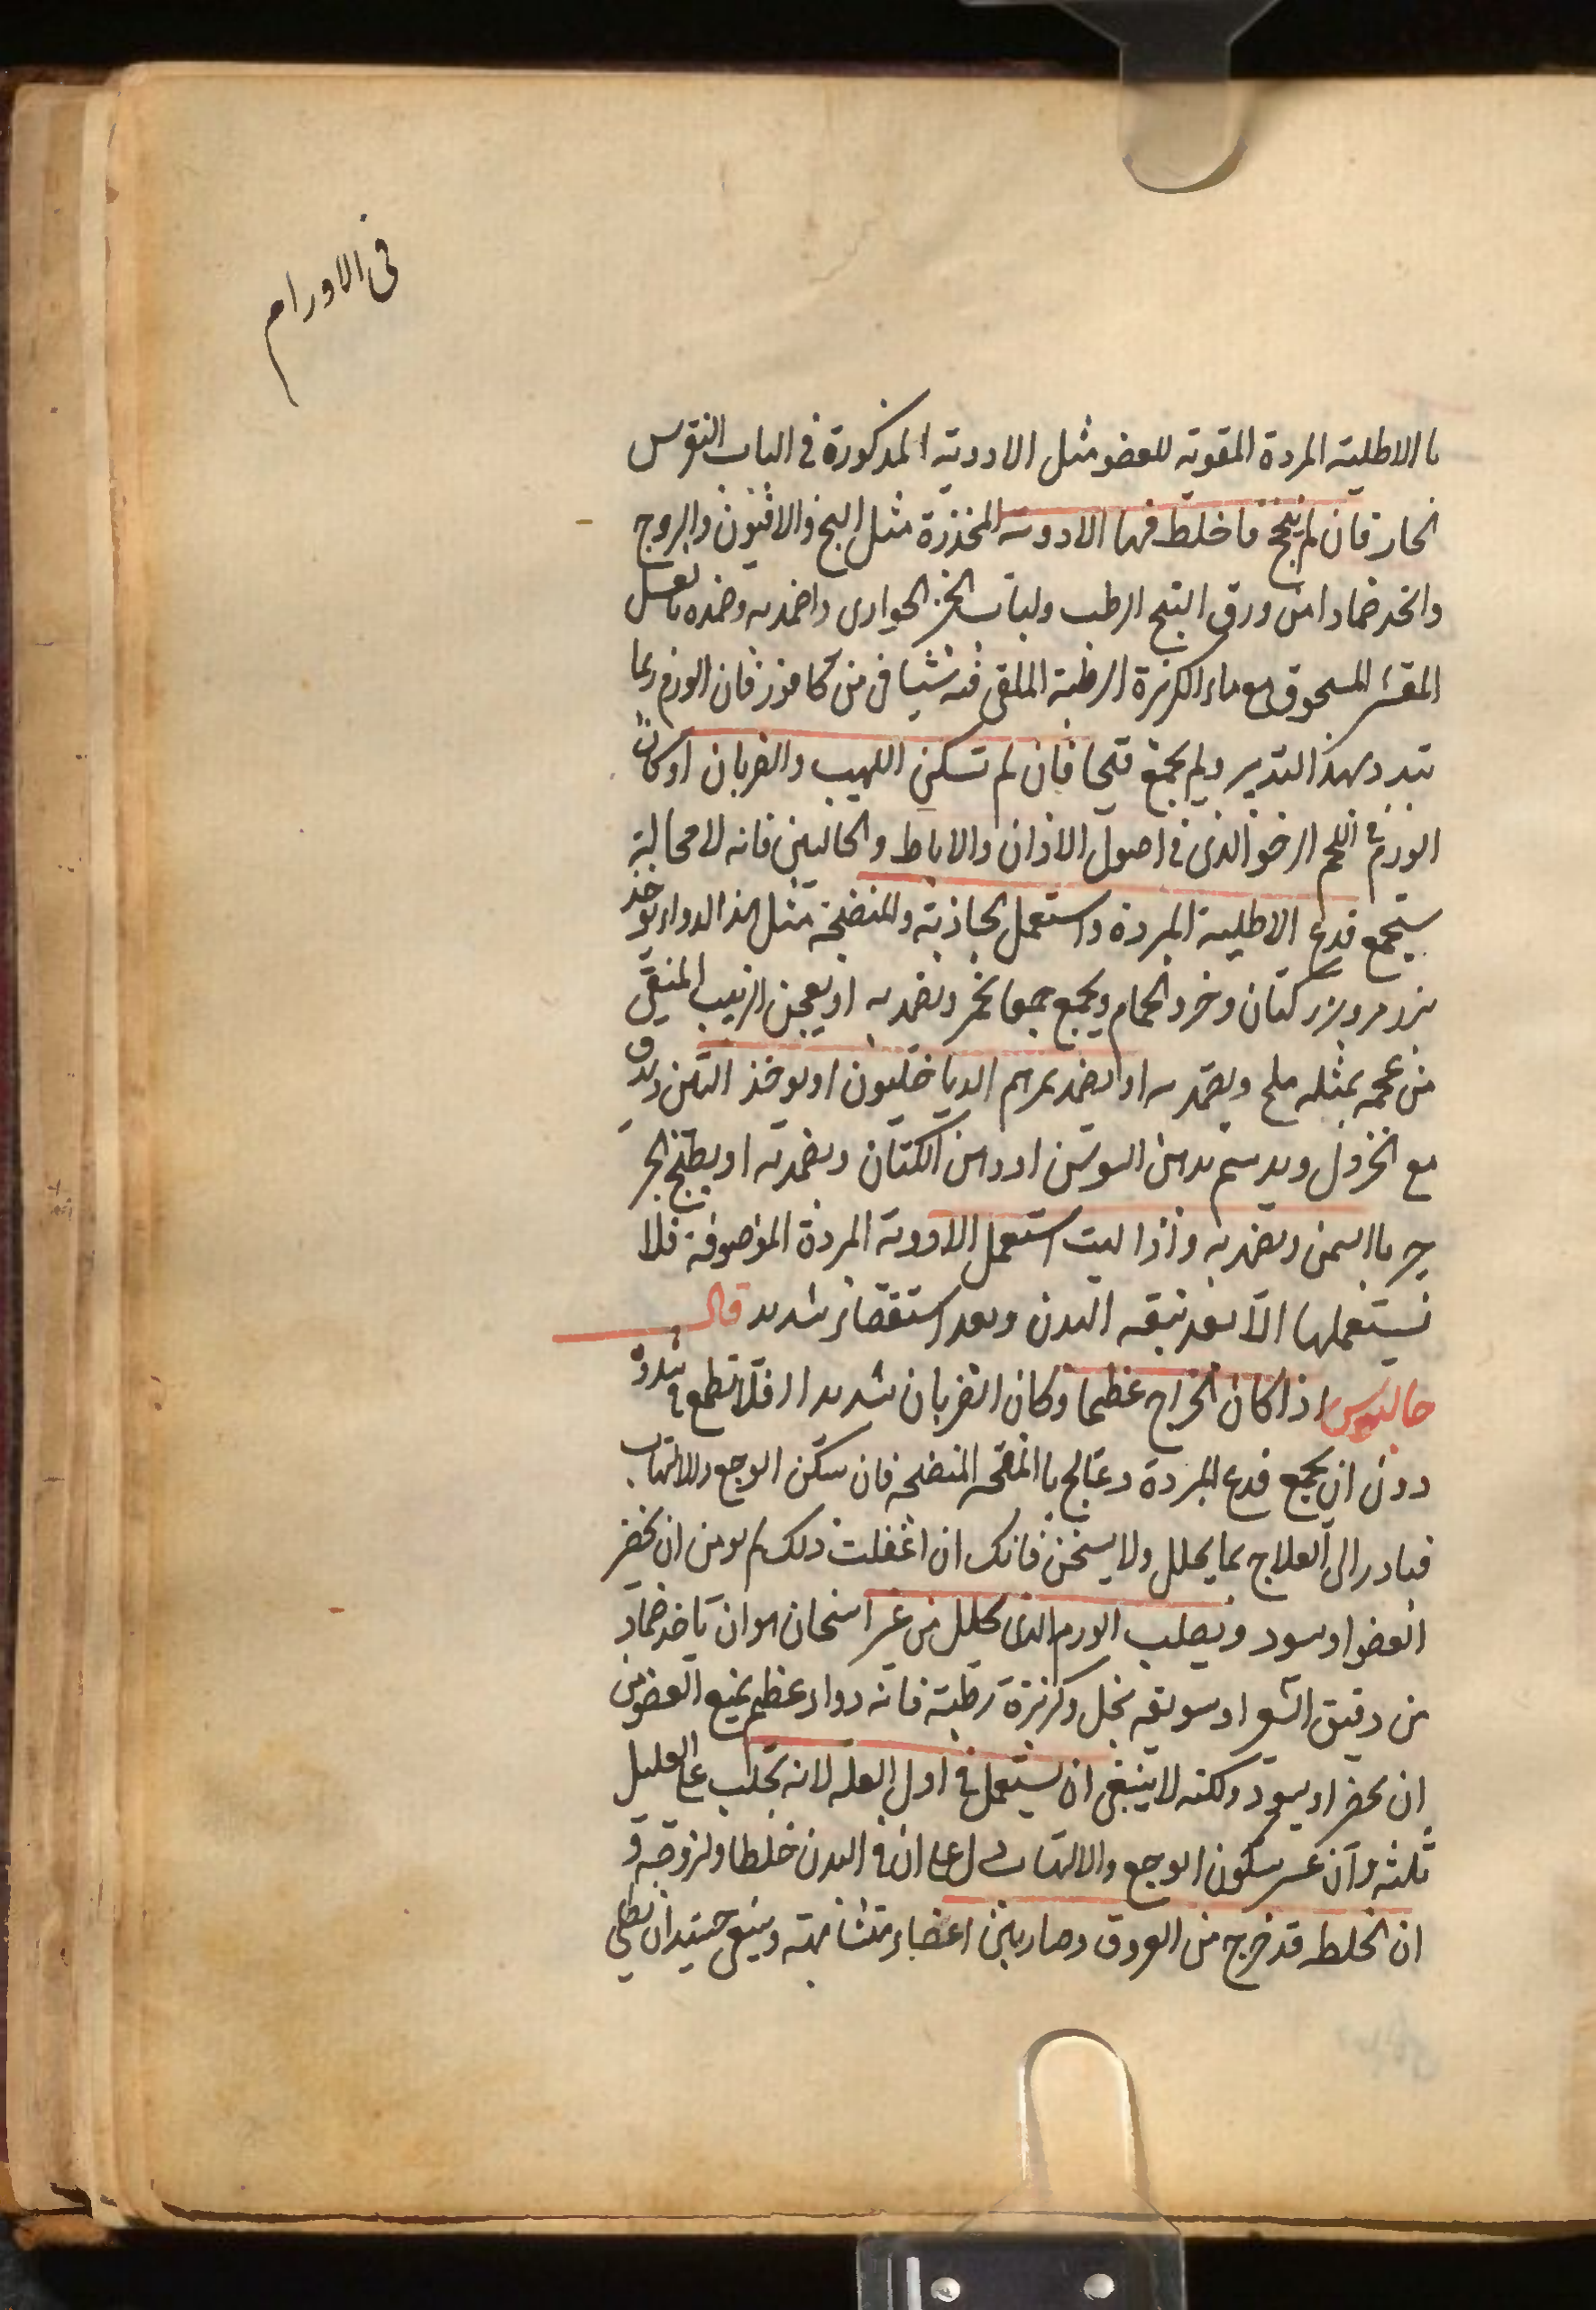 فى الاورام
با الاطلية المبردة المقوية للعضو مثل الادوية المذكورة فى الباب النقرس
الحار فان لم ينجح فاخلط فيها الادوية المخدرة مثل البنج والافيون واليبروج
واتخذ ضمادا من ورق البنج الرطب ولباب الخبز الحوارى واضمد به وضمده بالعسل
المقشر المسحوق مع ماء الكزبرة الرطبة الملقى فيه شياف من كافور فان الورم ربما
تبدد بهذا التدبير ولم يجمع قيحا فان لم تسكن اللهيب والضربان او كان
الورم فى اللحم الرخو الذى فى اصول الاذان والاباط والحالبين فانه لا محالة
سيجمع فدع الاطلية المبردة واستعمل الجاذبة والمنضجة مثل هذا الدواء يوخذ
بزر مرو بزر كتان وخرو الحمام ويجمع جميعا بخمر ويضمد به او يعجن الزبيب المنقى
من عجمه بمثله ملح ويضمد به او يضمد بمرهم الدياخليون او يوخذ التين ويدق
مع الخردل ويدسم بدهن السوسن او دهن الكتان ويضمد به او يطبخ الجر
جير با السمن ويضمد به واذا لبت استعمل الادوية المبردة الموصوفة فلا
نستعملها الا بعد تنقية البدن وبعد استقصاء شديد قال
جالينوس اذا كان الخراج عظيما وكان الضربان شديدا فلا تطمع فى تبدده
دون ان يجمع فدع المبردة وعالج با المفتحة المنضجة فان سكن الوجع والالتهاب
فبادر الى العلاج بما يحلل ولا يسخن فانك ان اغفلت ذلك لم يومن ان يخضر
العضو او يسود ويصلب الورم الذى يحلل من غير اسخان هو ان ياخذ ضماد
من دقيق الشعير او سويقه بخل وكزبرة رطبة فانه دواء عظيم يمنع العضو من
ان يخضر او يسود ولكنه لا ينبغى ان يستعمل فى اول العلة لانه يجلب على العليل
ثلثه وان عسر سكون الوجع والالتهاب دل على ان فى البدن خلطا ولزوجة و
ان الخلط قد خرج من العروق وصار بين اعضاء متشابهة وينبغى حينئذ ان نطلى